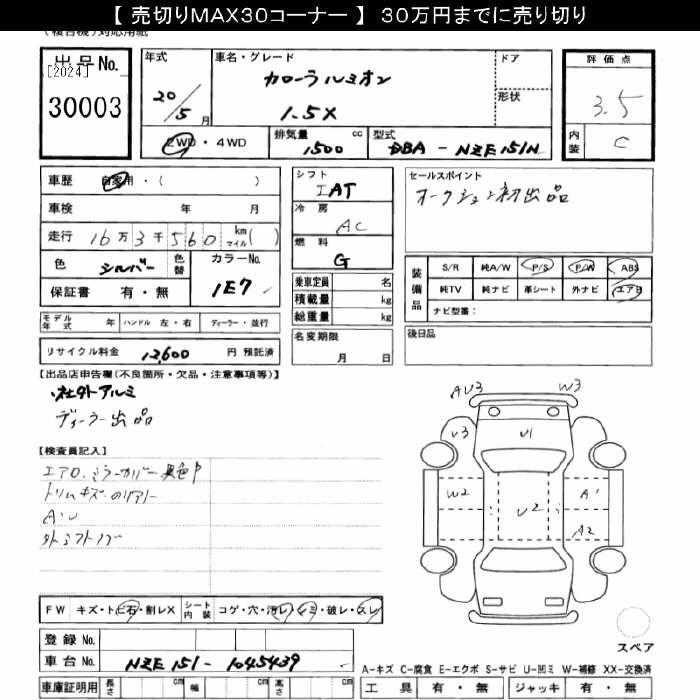 【 売切りMAX30コーナー 】 30万円までに売り切り
(複合機)対応用紙
出品No.
[2024]
30003
年式
20/5月
車名・グレード
カローラルミオン
1.5X
ドア
形状
評価点
3.5
内装
C
2WD・4WD
排気量
1500 cc
型式
DBA - NZE151N
車歴 自家用・( )
車検 年 月
走行 16万3千560 km マイル( )
色 シルバー 色替 カラーNo.
1E7
保証書 有・無
シフト
IAT
冷房
AC
燃料
G
セールスポイント
オークション初出品
装備品
S/R 純A/W P/S P/W ABS
純TV 純ナビ 革シート 外ナビ エアB
ナビ型番:
乗車定員 名
積載量 kg
総重量 kg
モデル年式 年 ハンドル 左・右 ディーラー・並行
名変期限
月 日
後日品
リサイクル料金 12,600 円 預託済
【出品店申告欄(不良箇所・欠品・注意事項等)】
社外アルミ
ディーラー出品
【検査員記入】
エアロ、ミラーカバー異色
トリムキズ
A・U
外シフトノブ
AU3
W3
U3
U1
W2
U2
A1
A2
スペア
FW キズ・トビ石・割レX シート内装 コゲ・穴・汚レ・シミ・破レ・スレ
登録No.
車台No. NZE151-1045439
車庫証明用 長さ cm 幅 cm 高さ cm
A-キズ C-腐食 E-エクボ S-サビ U-凹ミ W-補修 XX-交換済
工具 有・無 ジャッキ 有・無